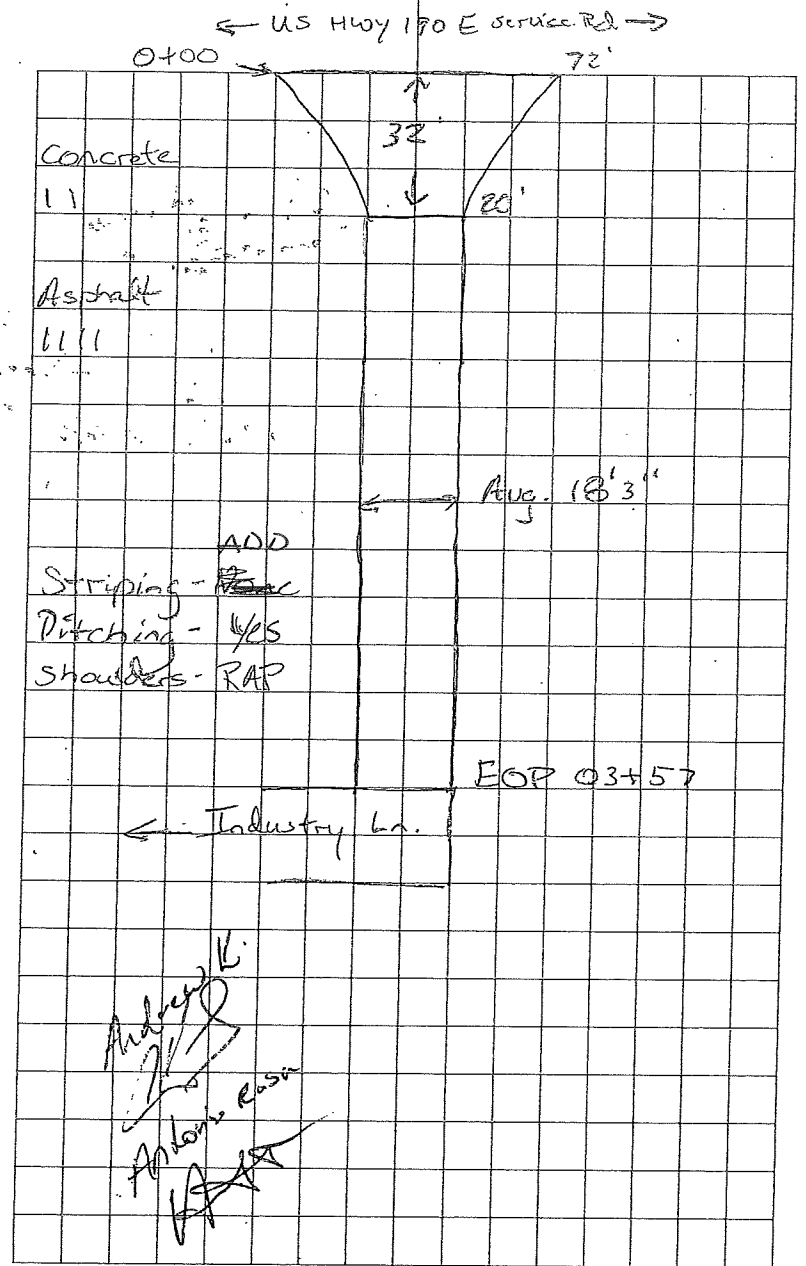 ← US HWY 190 E Service Rd →
0+00
72'
32'
20'
Concrete
11
Asphalt
1111
Avg. 18'3"
ADD
Striping -
Ditching - Yes
Shoulders - RAP
EOP 03+57
← Industry Ln.
Andrew K.
Antonio